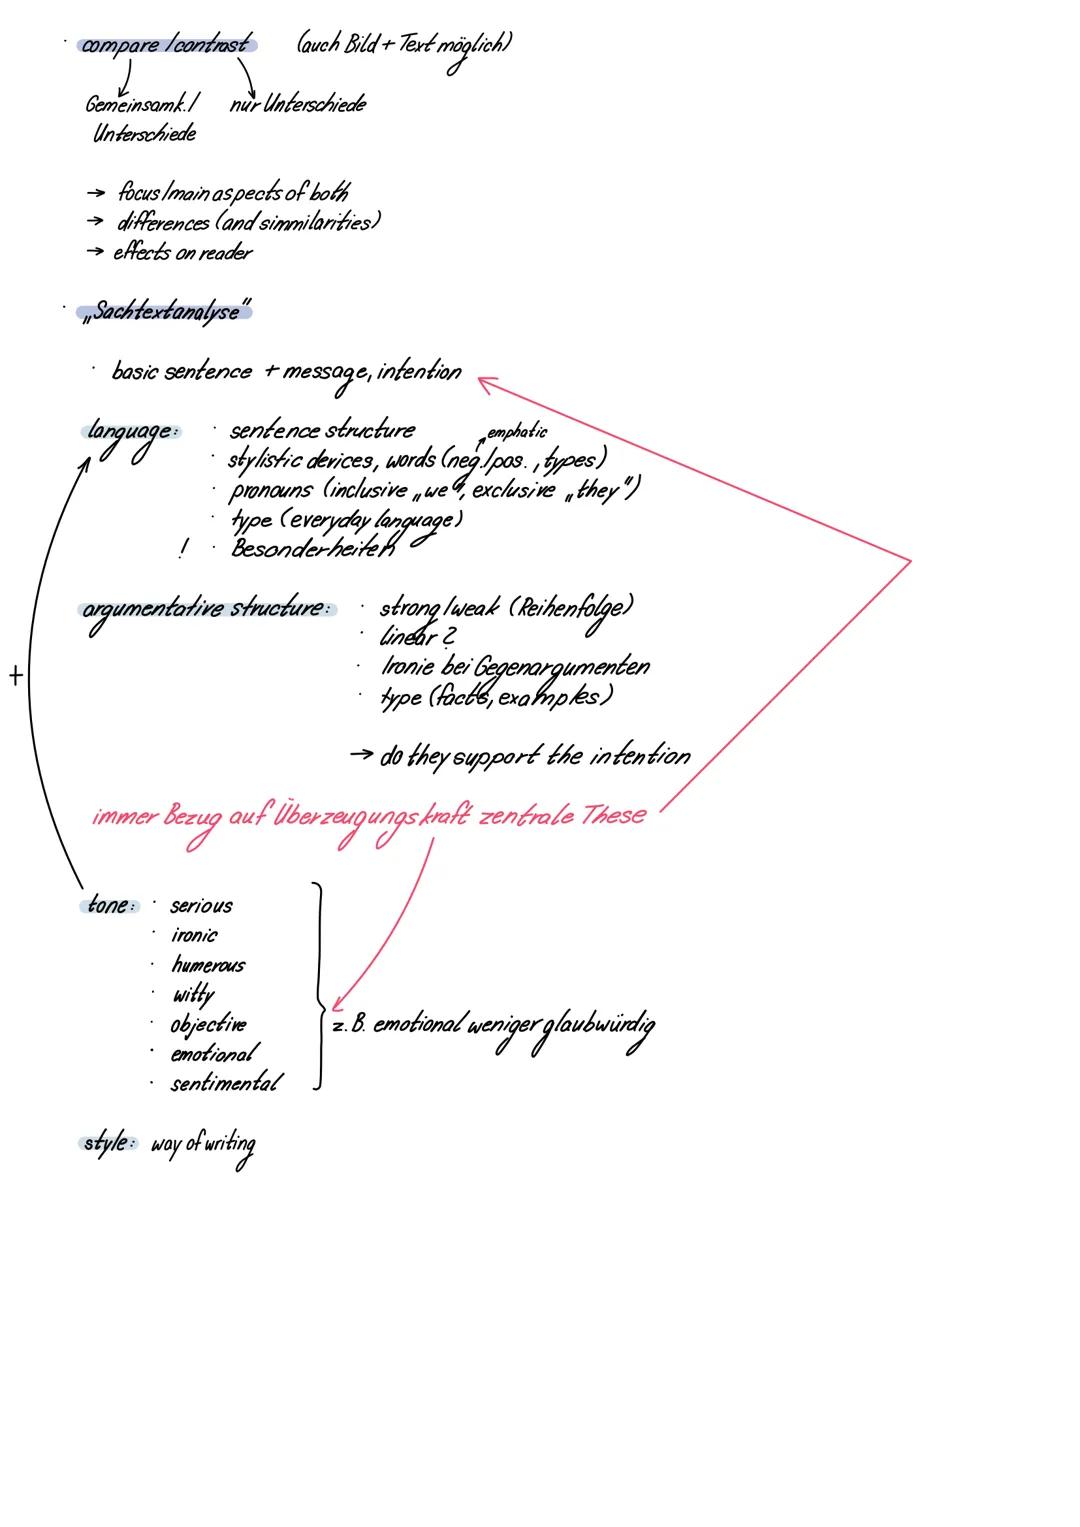 · compare / contrast (auch Bild + Text möglich)
Gemeinsamk. / nur Unterschiede
Unterschiede
→ focus / main aspects of both
→ differences (and simmilarities)
→ effects on reader
· „Sachtextanalyse"
· basic sentence + message, intention
language: · sentence structure
emphatic
· stylistic devices, words (neg. / pos. , types)
· pronouns (inclusive „we", exclusive „they")
· type (everyday language)
! · Besonderheiten
argumentative structure: · strong / weak (Reihenfolge)
· linear ?
+ · Ironie bei Gegenargumenten
· type (facts, examples)
→ do they support the intention
immer Bezug auf Überzeugungskraft zentrale These
tone: · serious
· ironic
· humerous
· witty
· objective z. B. emotional weniger glaubwürdig
· emotional
· sentimental
style: way of writing